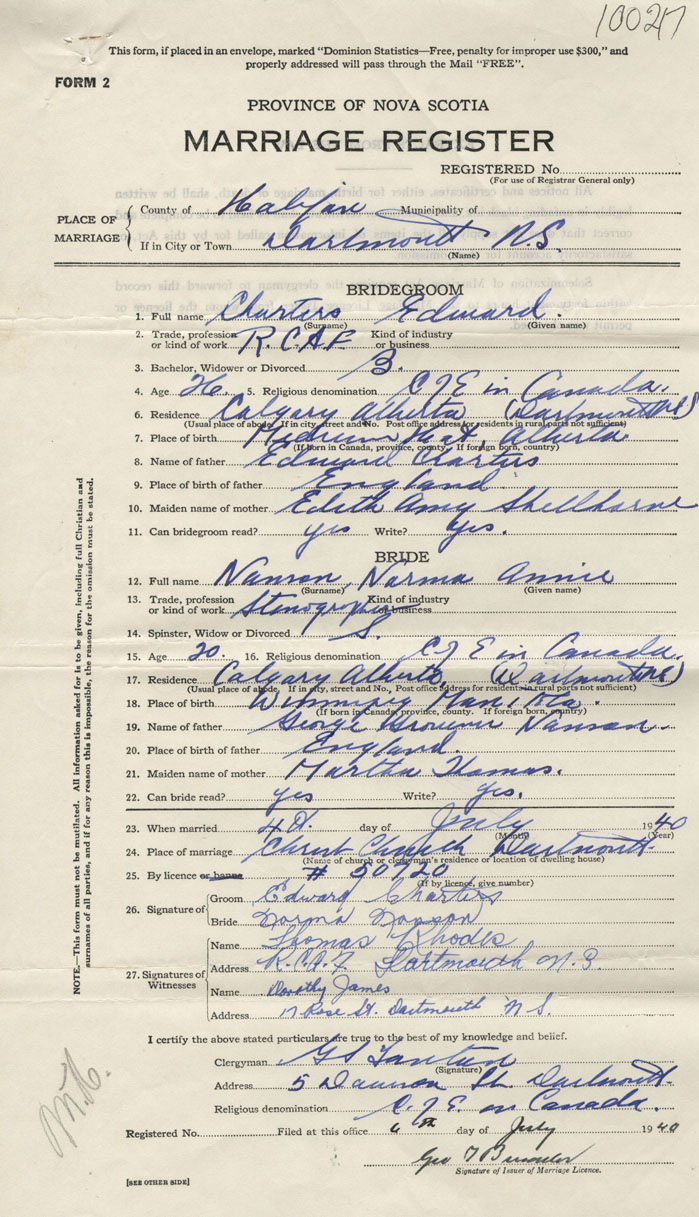 10027
This form, if placed in an envelope, marked "Dominion Statistics—Free, penalty for improper use $300," and
properly addressed will pass through the Mail "FREE".
FORM 2
PROVINCE OF NOVA SCOTIA
MARRIAGE REGISTER
REGISTERED No.
(For use of Registrar General only)
PLACE OF MARRIAGE
County of Halifax Municipality of
If in City or Town Dartmouth N.S.
(Name)
BRIDEGROOM
1. Full name Charters Edward.
(Surname) (Given name)
2. Trade, profession or kind of work R.C.A.F. Kind of industry or business
3. Bachelor, Widower or Divorced B.
4. Age 26. 5. Religious denomination C of E in Canada.
6. Residence Calgary Alberta (Dartmouth NS)
(Usual place of abode. If in city, street and No. Post office address for residents in rural parts not sufficient)
7. Place of birth Medicine Hat, Alberta
(If born in Canada, province, county. If foreign born, country)
8. Name of father Edward Charters
9. Place of birth of father England
10. Maiden name of mother Edith Amy Shellhorne
11. Can bridegroom read? yes Write? yes.
BRIDE
12. Full name Nanson, Norma Annie
(Surname) (Given name)
13. Trade, profession or kind of work Stenographer Kind of industry or business
14. Spinster, Widow or Divorced S.
15. Age 20. 16. Religious denomination C of E in Canada.
17. Residence Calgary Alberta, (Dartmouth NS)
(Usual place of abode. If in city, street and No., Post office address for residents in rural parts not sufficient)
18. Place of birth Winnipeg Manitoba.
(If born in Canada, province, county. If foreign born, country)
19. Name of father George Nanson.
20. Place of birth of father England.
21. Maiden name of mother Martha Thomas.
22. Can bride read? yes Write? yes.
23. When married 4th. day of July 1940
(Month) (Year)
24. Place of marriage Christ Church Dartmouth
(Name of church or clergyman's residence or location of dwelling house)
25. By licence or banns # 50120
(If by licence, give number)
26. Signature of
Groom Edward Charters
Bride Norma Nanson
27. Signatures of Witnesses
Name Thomas Rhodes
Address R.C.A.F Dartmouth N.S.
Name Dorothy James
Address 17 Rose St. Dartmouth N S.
I certify the above stated particulars are true to the best of my knowledge and belief.
Clergyman
(Signature)
Address 5 Dawson St. Dartmouth.
Religious denomination C. of E. in Canada.
Registered No. Filed at this office 6th day of July 1940
Geo
Signature of Issuer of Marriage Licence.
[SEE OTHER SIDE]
NOTE.—This form must not be mutilated. All information asked for is to be given, including full Christian and
surnames of all parties, and if for any reason this is impossible, the reason for the omission must be stated.